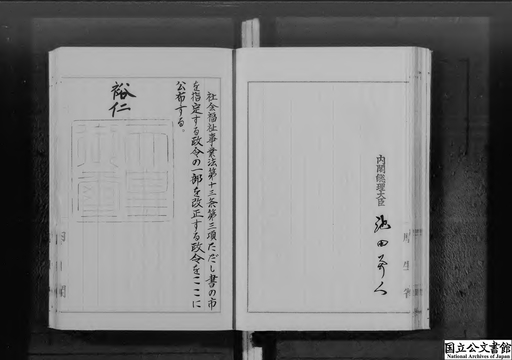 社会福祉事業法第十三条第三項ただし書の市
を指定する政令の一部を改正する政令をここに
公布する。
裕仁
内閣総理大臣 池田勇人
国立公文書館
National Archives of Japan